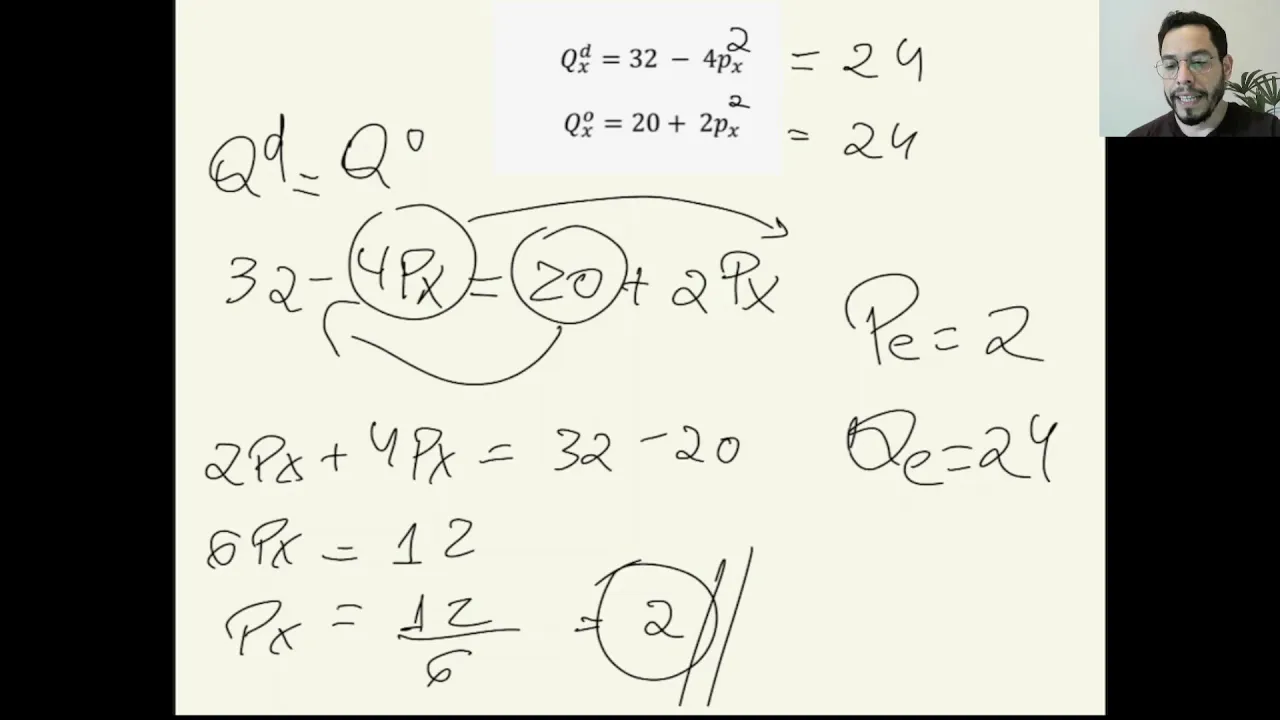 Q_x^d = 32 − 4p_x^2 = 24
Q_x^o = 20 + 2p_x^2 = 24
Q^d = Q^o
32 - 4Px = 20 + 2Px
Pe = 2
Qe = 24
2Px + 4Px = 32 - 20
6Px = 12
Px = 12/6 = 2